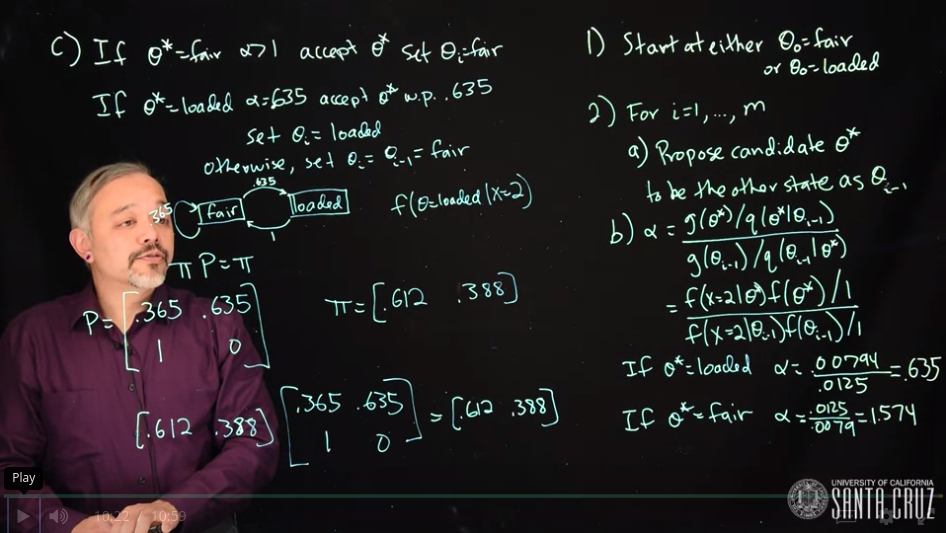 c) If θ*=fair α>1 accept θ* set θi=fair
If θ*=loaded α=.635 accept θ* w.p. .635
set θi= loaded
otherwise, set θi= θi-1= fair
.635
.365 fair loaded
1
f(θ=loaded|X=2)
π P=π
P= [.365 .635
1 0]
π=[.612 .388]
[.612 .388] [.365 .635
1 0] = [.612 .388]
1) Start at either θ0=fair
or θ0=loaded
2) For i=1,...,m
a) Propose candidate θ*
to be the other state as θi-1
b) α = g(θ*)/q(θ*|θi-1)
g(θi-1)/q(θi-1|θ*)
= f(x=2|θ*)f(θ*)/1
f(x=2|θi-1)f(θi-1)/1
If θ*=loaded α= .00794/.0125=.635
If θ*=fair α=.0125/.0079=1.574
Play
10:22 / 10:59
UNIVERSITY OF CALIFORNIA
SANTA CRUZ